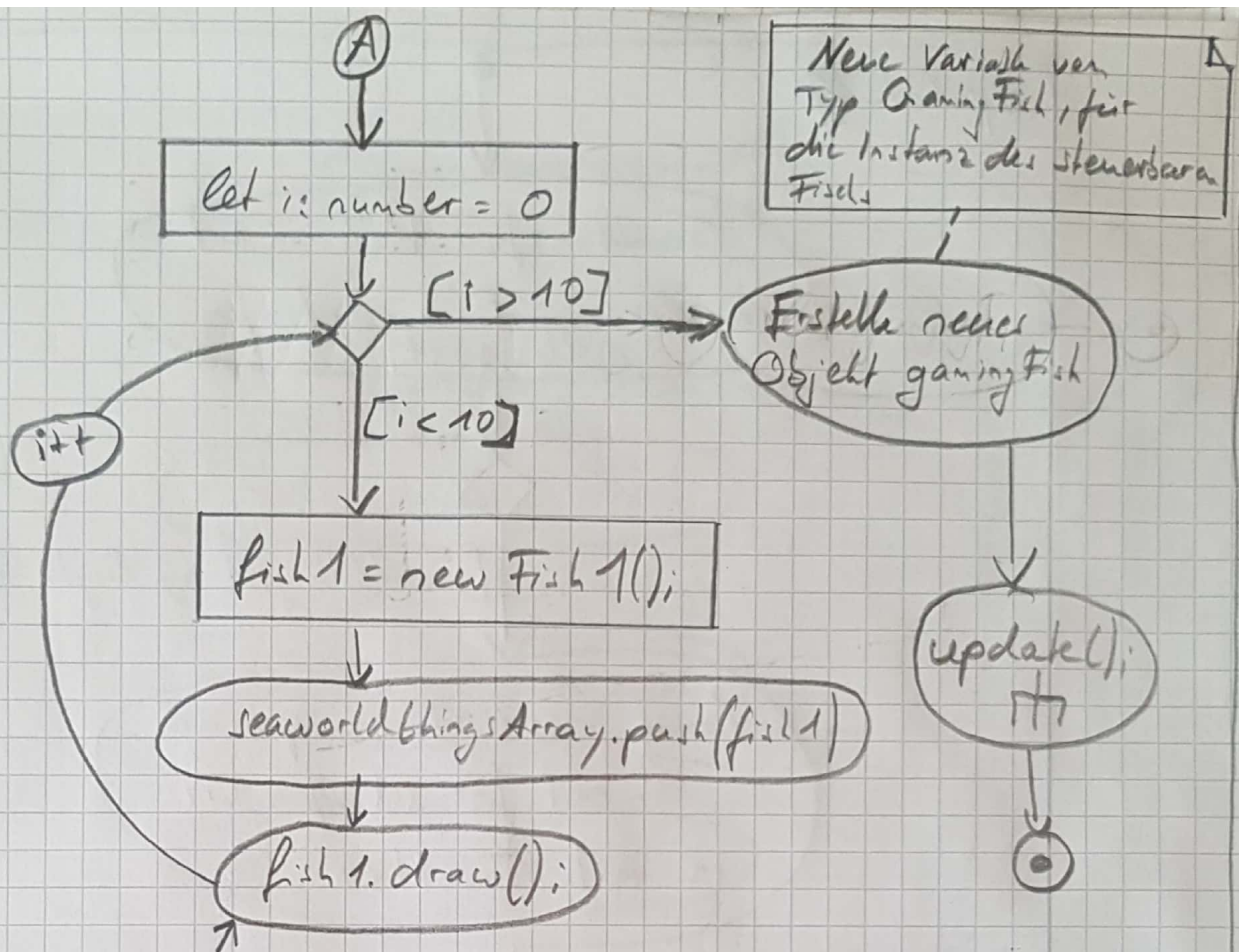 A
let i: number = 0
[i > 10]
[i < 10]
i++
fish1 = new Fish1();
seaworldthingsArray.push(fish1)
fish1.draw();
Neue Variable vom
Typ GamingFish, für
die Instanz des steuerbaren
Fischs
Erstelle neues
Objekt gamingFish
update();